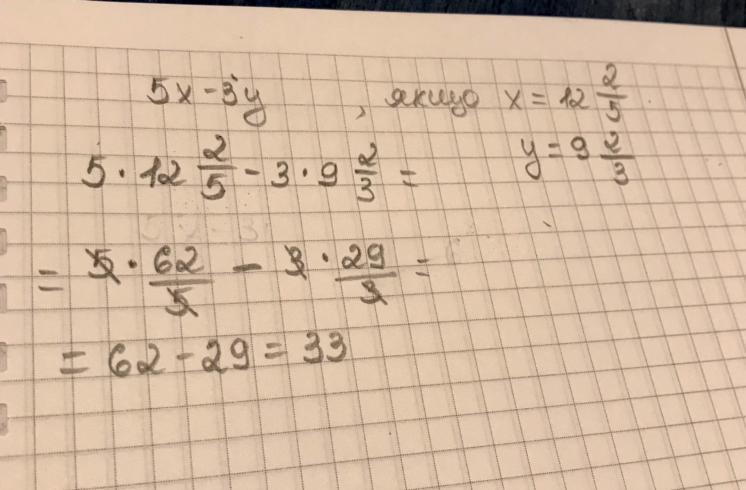 5x - 3y , якщо x = 12 2/5
y = 9 2/3
5 · 12 2/5 - 3 · 9 2/3 =
= 5 · 62/5 - 3 · 29/3 =
= 62 - 29 = 33